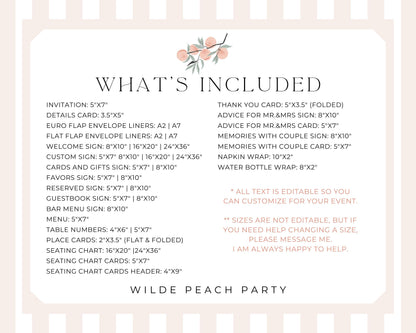 WHAT'S INCLUDED
INVITATION: 5"X7"
DETAILS CARD: 3.5"X5"
EURO FLAP ENVELOPE LINERS: A2 | A7
FLAT FLAP ENVELOPE LINERS: A2 | A7
WELCOME SIGN: 8"X10" | 16"X20" | 24"X36"
CUSTOM SIGN: 5"X7" 8"X10" | 16"X20" | 24"X36"
CARDS AND GIFTS SIGN: 5"X7" | 8"X10"
FAVORS SIGN: 5"X7" | 8"X10"
RESERVED SIGN: 5"X7" | 8"X10"
GUESTBOOK SIGN: 5"X7" | 8"X10"
BAR MENU SIGN: 8"X10"
MENU: 5"X7"
TABLE NUMBERS: 4"X6" | 5"X7"
PLACE CARDS: 2"X3.5" (FLAT & FOLDED)
SEATING CHART: 16"X20" |24"X36"
SEATING CHART CARDS: 5"X7"
SEATING CHART CARDS HEADER: 4"X9"
THANK YOU CARD: 5"X3.5" (FOLDED)
ADVICE FOR MR.&MRS SIGN: 8"X10"
ADVICE FOR MR.&MRS CARD: 5"X7"
MEMORIES WITH COUPLE SIGN: 8"X10"
MEMORIES WITH COUPLE CARD: 5"X7"
NAPKIN WRAP: 10"X2"
WATER BOTTLE WRAP: 8"X2"
* ALL TEXT IS EDITABLE SO YOU
CAN CUSTOMIZE FOR YOUR EVENT.
** SIZES ARE NOT EDITABLE, BUT IF
YOU NEED HELP CHANGING A SIZE,
PLEASE MESSAGE ME.
I AM ALWAYS HAPPY TO HELP.
WILDE PEACH PARTY